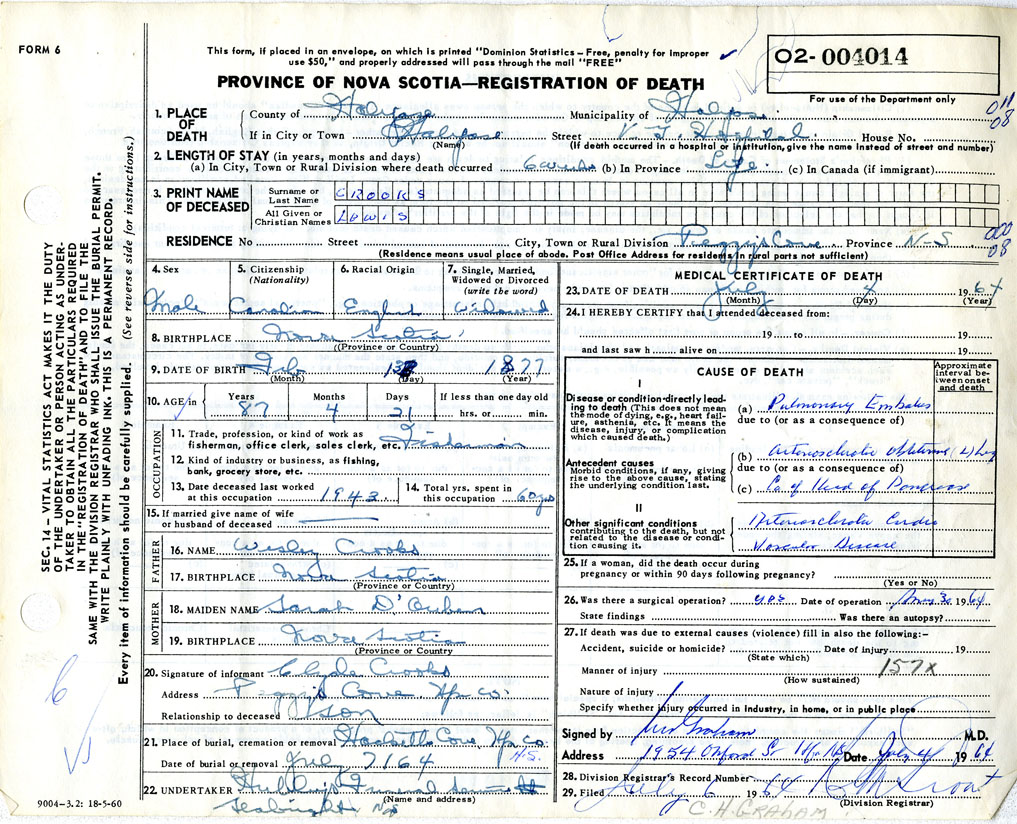 FORM 6
This form, if placed in an envelope, on which is printed "Dominion Statistics – Free, penalty for improper
use $50," and properly addressed will pass through the mail "FREE"
02- 004014
PROVINCE OF NOVA SCOTIA—REGISTRATION OF DEATH
For use of the Department only
1. PLACE OF DEATH
County of Halifax Municipality of Halifax
If in City or Town Halifax Street V. G. Hospital House No.
(Name) (If death occurred in a hospital or institution, give the name instead of street and number)
2. LENGTH OF STAY (in years, months and days)
(a) In City, Town or Rural Division where death occurred 6 weeks (b) In Province Life (c) In Canada (if immigrant)
3. PRINT NAME OF DECEASED
Surname or Last Name CROOKS
All Given or Christian Names LEWIS
RESIDENCE No Street City, Town or Rural Division Peggy's Cove Province N-S
(Residence means usual place of abode. Post Office Address for residents in rural parts not sufficient)
000
08
4. Sex 5. Citizenship (Nationality) 6. Racial Origin 7. Single, Married, Widowed or Divorced (write the word)
Male Canadian English Widowed
8. BIRTHPLACE Nova Scotia
(Province or Country)
9. DATE OF BIRTH Feb 13 1877
(Month) (Day) (Year)
10. AGE Years Months Days If less than one day old
87 4 21 hrs. or min.
OCCUPATION
11. Trade, profession, or kind of work as
fisherman, office clerk, sales clerk, etc. Fisherman
12. Kind of industry or business, as fishing,
bank, grocery store, etc.
13. Date deceased last worked at this occupation 1943
14. Total yrs. spent in this occupation 60 yrs
15. If married give name of wife
or husband of deceased
FATHER
16. NAME Wesley Crooks
17. BIRTHPLACE Nova Scotia
(Province or Country)
MOTHER
18. MAIDEN NAME Sarah
19. BIRTHPLACE Nova Scotia
(Province or Country)
20. Signature of informant Clyde Crooks
Address Peggy's Cove Hfx Co.
Relationship to deceased son
21. Place of burial, cremation or removal Hacketts Cove, Hfx Co
N.S.
Date of burial or removal July 7 1964
22. UNDERTAKER Hubley's Funeral
(Name and address)
Seabright N.S
9004–3.2: 18-5-60
MEDICAL CERTIFICATE OF DEATH
23. DATE OF DEATH July 4 1964
(Month) (Day) (Year)
24. I HEREBY CERTIFY that I attended deceased from:
19 to 19
and last saw h alive on 19
CAUSE OF DEATH
Approximate interval between onset and death
I
Disease or condition directly leading to death (This does not mean the mode of dying, e.g., heart failure, asthenia, etc. It means the disease, injury, or complication which caused death.)
(a) Pulmonary Embolus
due to (or as a consequence of)
Antecedent causes
Morbid conditions, if any, giving rise to the above cause, stating the underlying condition last.
(b) Arteriosclerotic Leg
due to (or as a consequence of)
(c) Ca of Head of Pancreas
II
Other significant conditions
contributing to the death, but not related to the disease or condition causing it.
Arteriosclerotic Cardio
Vascular Disease
25. If a woman, did the death occur during
pregnancy or within 90 days following pregnancy?
(Yes or No)
26. Was there a surgical operation? yes Date of operation 1964
State findings Was there an autopsy?
27. If death was due to external causes (violence) fill in also the following:–
Accident, suicide or homicide? Date of injury 19
(State which)
157X
Manner of injury
(How sustained)
Nature of injury
Specify whether injury occurred in industry, in home, or in public place
Signed by Graham M.D.
Address 1954 Oxford St Hfx NS Date July 4 1964
28. Division Registrar's Record Number
29. Filed July 6 1964
(Division Registrar)
C.H. GRAHAM
SEC. 14 – VITAL STATISTICS ACT MAKES IT THE DUTY
OF THE UNDERTAKER OR PERSON ACTING AS UNDERTAKER
TO OBTAIN ALL THE PARTICULARS REQUIRED
IN THE "REGISTRATION OF DEATH" AND TO FILE THE
SAME WITH THE DIVISION REGISTRAR WHO SHALL ISSUE THE BURIAL PERMIT.
WRITE PLAINLY WITH UNFADING INK. THIS IS A PERMANENT RECORD.
Every item of information should be carefully supplied. (See reverse side for instructions.)